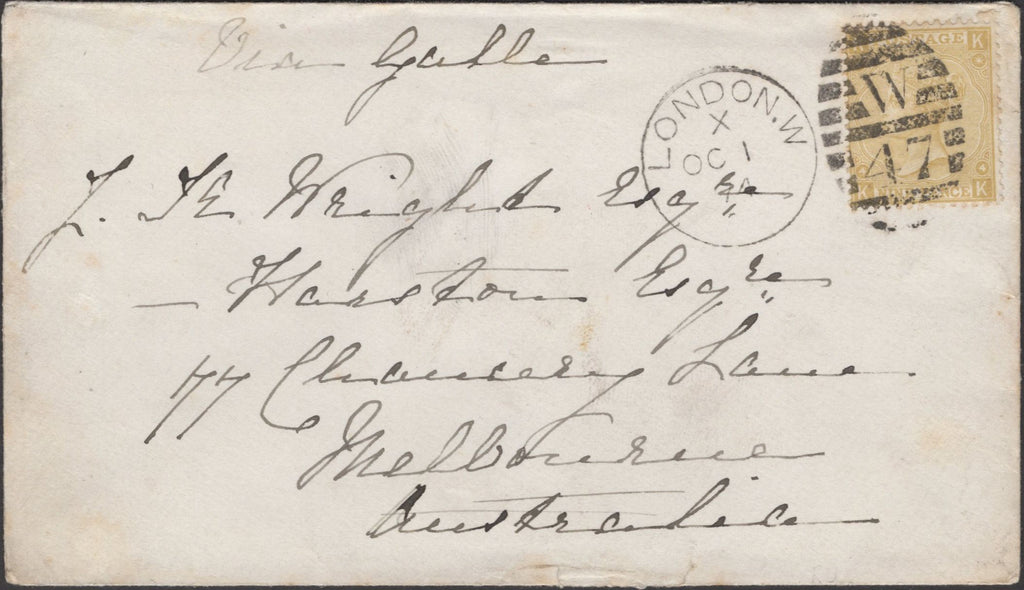 Via Galle
LONDON.W
X
OC 1
74
W
47
POSTAGE K
K NINE PENCE K
J. H. Wright Esqre
— Harston Esqre
77 Chancery Lane
Melbourne
Australia